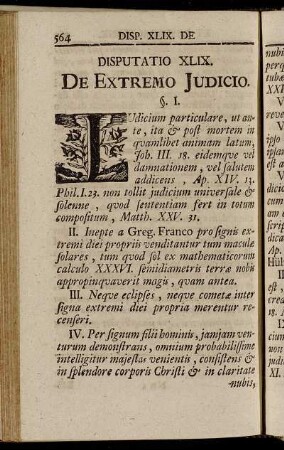 564 DISP. XLIX. DE
DISPUTATIO XLIX.
DE EXTREMO JUDICIO.
§. I.
JUdicium particulare, ut an-
te, ita & post mortem in
quamlibet animam latum,
Joh. III. 18. eidemque vel
damnationem, vel salutem
addicens, Ap. XIV. 13.
Phil. I. 23. non tollit judicium universale &
solenne, quod sententiam fert in totum
compositum, Matth. XXV. 31.
II. Inepte a Greg. Franco pro signis ex-
tremi diei propriis venditantur tum maculæ
solares, tum quod sol ex mathematicorum
calculo XXXVI. semidiametris terræ nobis
appropinquaverit magis, quam antea.
III. Neque eclipses, neque cometæ inter
signa extremi diei propria merentur re-
censeri.
IV. Per signum filii hominis, jamjam ven-
turum demonstrans, omnium probabilissime
intelligitur majestas venientis, consistens &
in splendore corporis Christi & in claritate
nubis,